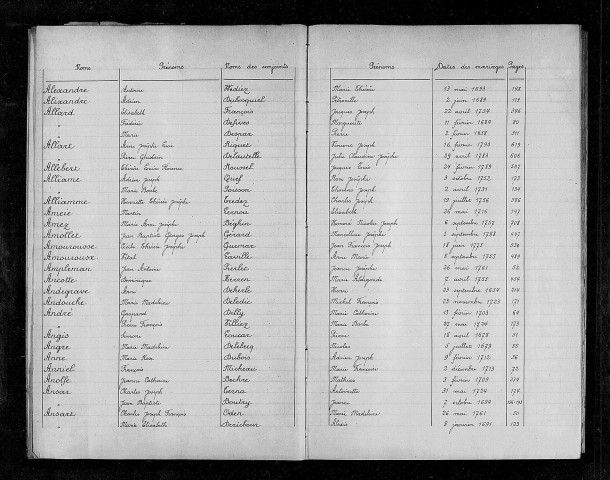 Noms Prénoms Noms des conjoints Prénoms Dates des mariages Pages
Alexandre Antoine Wédiez Marie Thérèse 13 mai 1693 198
Alexandre Adrien Dubocquiel Pétronille 2 juin 1689 113
Allard Elisabeth François Jacques Joseph 22 avril 1784 546
" Frédéric Marguerite 11 février 1680 80
" Marie Despar Pierre 2 février 1688 311
Allart Anne Riquet Vincent Joseph 16 février 1790 619
" Pierre Ghislain Delautelle Julie 29 avril 1783 505
Allebert Thérèse Louise Florence Roussel Jacques Louis 24 février 1789 552
Alliame Adrien Joseph Quef Rose Josèphe 3 octobre 1752 172
" Marie Barbe Poisson Charles Joseph 2 avril 1731 134
Alliamme Henriette Thérèse Josèphe Tredez Charles Joseph 19 juillet 1756 186
Amcie Martin Elisabeth 26 mai 1716 147
Amez Marie Anne Josèphe Béghin Vincent Nicolas Joseph 6 septembre 1757 708
Amollet Jean Baptiste Georges Joseph Gérard Marcelline Josèphe 1 septembre 1788 497
Amourousse Cécile Thérèse Josèphe Guemar Jean François Joseph 18 juin 1772 324
Amouroux Vital Caville Anne Marie 8 septembre 1753 419
Ampleman Jean Antoine Perlet Jeanne Josèphe 26 mai 1761 52
Ancotte Dominique Herren Marie 2 avril 1755 454
Andegrave Anne Dekerle Henri 29 septembre 1684 214
Andouche Marie Madeleine Deledic Michel François 23 novembre 1723 171
André Gaspard Dilly Marie Catherine 13 février 1703 64
" Pierre François Villiez Marie Barbe 22 mai 1724 173
Angis Simon Coucar Anne 18 avril 1678 51
Angre Marie Madeleine Delébecq Nicolas 5 juillet 1679 55
Anne Marie Rose Dubois Adrien Joseph 9 février 1712 36
Anniel François Micheau Marie Françoise 2 décembre 1713 72
Anolfe Jeanne Catherine Beckre Mathieu 3 février 1709 224
Ansar Charles Joseph Cerna Antoinette 31 mai 1724 174
" Jean Baptiste Boutry Jeanne 7 octobre 1694
Ansart Charles Joseph François Oden Marie Madeleine 26 mai 1761 50
" Marie Elisabeth Derichour Alexis 8 janvier 1691 123